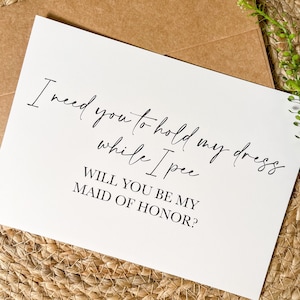 I need you to hold my dress
while I pee
WILL YOU BE MY
MAID OF HONOR?